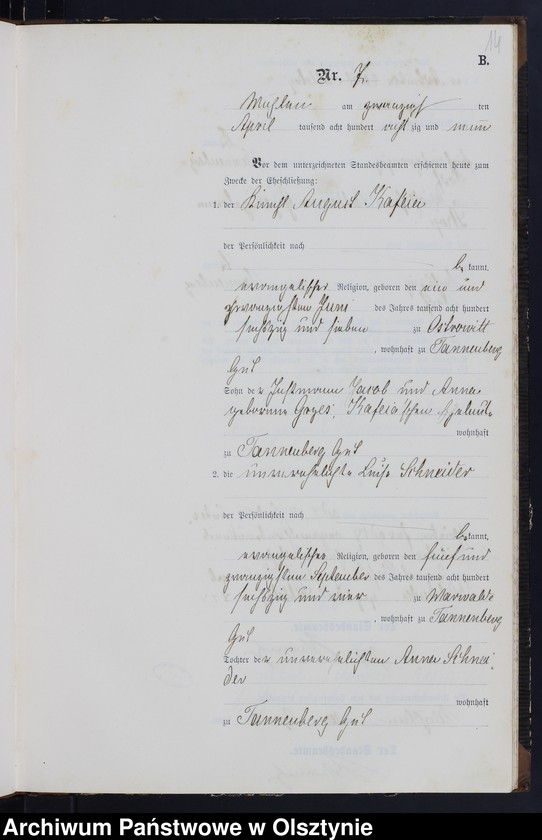 14
B.
Nr. 7.
Mühlen am zwanzigsten
April tausend acht hundert acht zig und neun
Vor dem unterzeichneten Standesbeamten erschienen heute zum
Zwecke der Eheschließung:
1. der Knecht August Kafeia
der Persönlichkeit nach
be kannt,
evangelischer Religion, geboren den ein und
zwanzigsten Juni des Jahres tausend acht hundert
sechszig und sieben zu Ostrowitt
, wohnhaft zu Tannenberg
Gut
Sohn der Instmann Jacob und Anna
geborene Kafeia'schen Eheleute
wohnhaft
zu Tannenberg Gut
2. die unverehelichte Luise Schneider
der Persönlichkeit nach
be kannt,
evangelischer Religion, geboren den fünf und
zwanzigsten September des Jahres tausend acht hundert
sechszig und vier zu Marwalde
, wohnhaft zu Tannenberg
Gut
Tochter der unverehelichten Anna Schnei-
der
wohnhaft
zu Tannenberg Gut
Archiwum Państwowe w Olsztynie